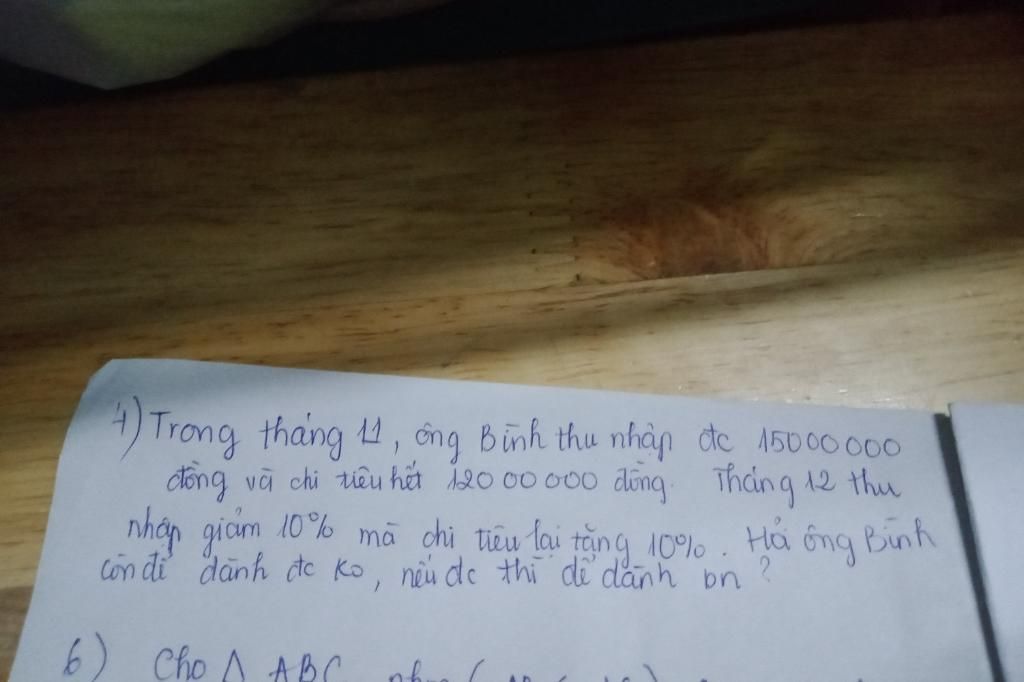 4) Trong tháng 11, ông Bình thu nhập đc 15000000
đồng và chi tiêu hết 12000000 đồng. Tháng 12 thu
nhập giảm 10% mà chi tiêu lại tăng 10%. Hỏi ông Bình
còn để dành đc ko, nếu đc thì để dành bn?
6) Cho Δ ABC